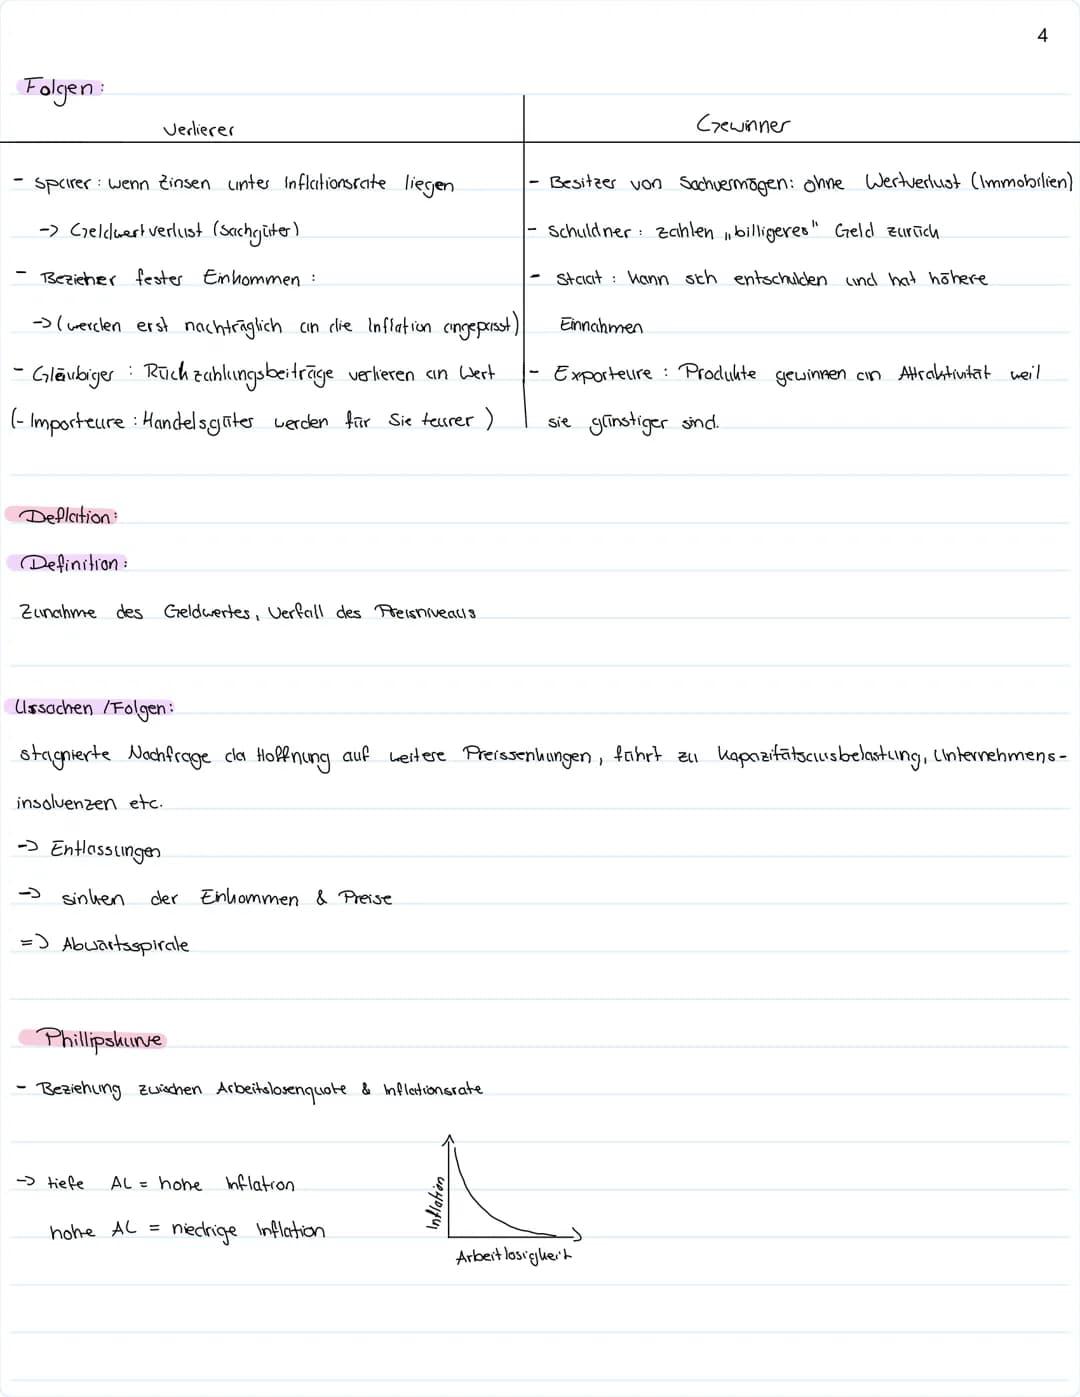 4
Folgen:
Verlierer
Gewinner
- Sparer: wenn Zinsen unter Inflationsrate liegen
-> Geldwertverlust (Sachgüter)
- Bezieher fester Einkommen:
-> (werden erst nachträglich an die Inflation angepasst)
- Gläubiger: Rückzahlungsbeiträge verlieren an Wert
(- Importeure: Handelsgüter werden für Sie teurer)
- Besitzer von Sachvermögen: ohne Wertverlust (Immobilien)
- Schuldner: zahlen „billigeres" Geld zurück
- Staat: kann sich entschulden und hat höhere
Einnahmen
- Exporteure: Produkte gewinnen an Attraktivität weil
sie günstiger sind.
Deflation:
Definition:
Zunahme des Geldwertes, Verfall des Preisniveaus
Ursachen /Folgen:
stagnierte Nachfrage da Hoffnung auf weitere Preissenkungen, führt zu Kapazitätsausbelastung, Unternehmens-
insolvenzen etc.
-> Entlassungen
-> sinken der Einkommen & Preise
=> Abwärtsspirale
Phillipskurve
- Beziehung zwischen Arbeitslosenquote & Inflationsrate
-> tiefe AL = hohe Inflation
hohe AL = niedrige Inflation
Inflation
Arbeitlosigkeit